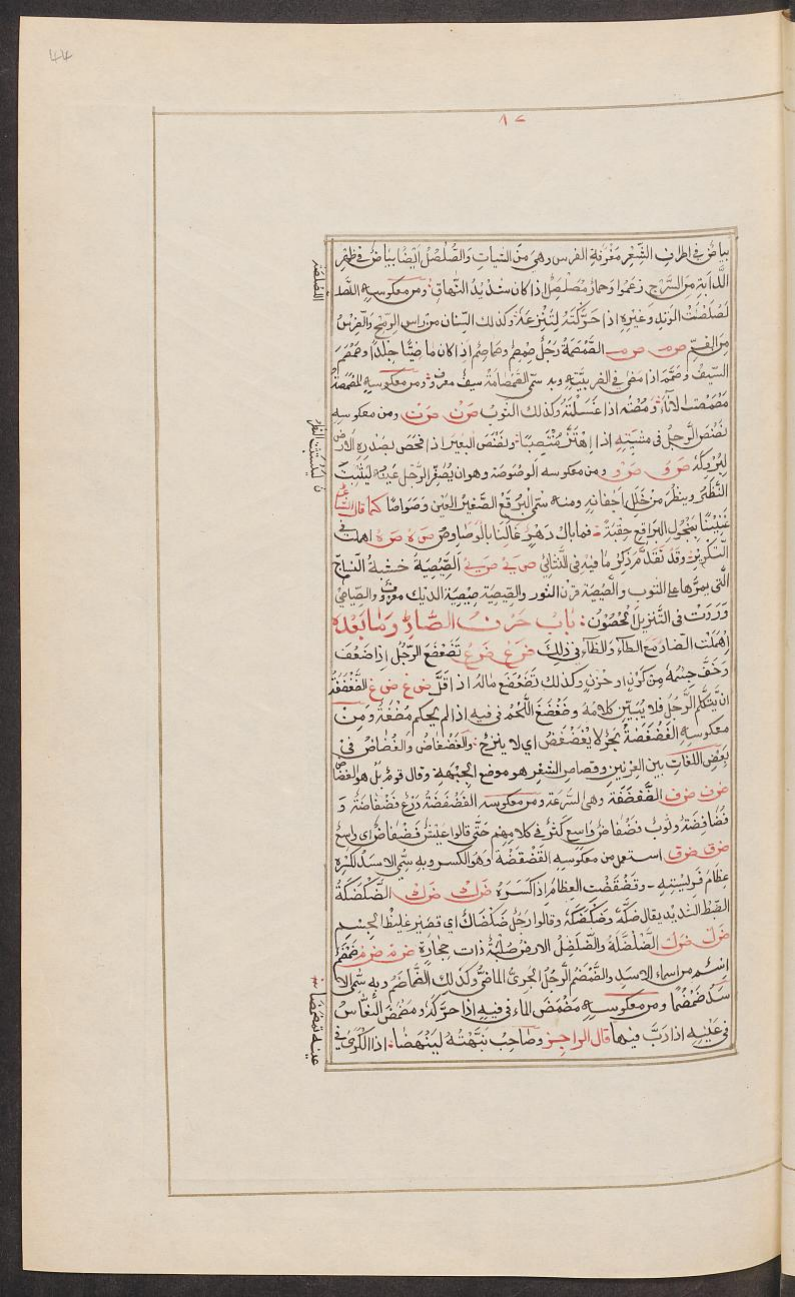 ٤٤
٨٧
بياض في اطراف الشعر معروفة الفرس وهي من الشيات والصلصل ايضا بياض في ظهر
الدابة من السرج زعموا وحمار مصلصل اذا كان شديد النهاق ومن معكوسه اللصلصة
لصلصت الوتد وغيره اذا حركته لتنزعه وكذلك السنان من راس الرمح والضرس
من الفم ص م ص م الصمصمة رجل صمصم وصماصم اذا كان ماضيا جلدا وصمصم
السيف وصمم اذا مضى في الضريبة وبه سمي الصمصامة سيف معروف ومن معكوسه المصمصة
مصمصت الاناء ومصته اذا غسلته وكذلك الثوب ص ن ص ن ومن معكوسه
نصنص الرجل في مشيته اذا اهتز منتصبا ونصنص البعير اذا فحص بصدره الارض
ليبرك ص و ص و ومن معكوسه الوصوصة وهو ان يصغر الرجل عينه ليثبت
النظر وينظر من خلل اجفانه ومنه سمي البرقع الصغير العين وصواصا كما قال الشاعر
غنينا بنجول البراقع حقبة فما بال دهر غالنا بالوصاوص ص ه ص ه اهملت في
التكرير وقد تقدم ذكر ما فيه في الثنائي ص ي ص ي الصيصية خشبة النساج
التي يمرها على الثوب والصيصة قرن الثور والصيصية صيصية الديك معروف والصياصي
وردت في التنزيل الحصون باب حرف الضاد وما بعده
اهملت الضاد مع الطاء والظاء في ذلك ض ع ض ع تضعضع الرجل اذا ضعف
وخف جسمه من كرب او حزن وكذلك تضعضع ماله اذا قل ض غ ض غ الضغضغة
ان يتكلم الرجل فلا يبين كلامه وضغضغ اللحم في فيه اذا لم يحكم مضغه ومن
معكوسه الغضغضة بحر لا يغضغض اي لا ينزح والغضغاض والغضاض في
بعض اللغات بين العرنين وقصاص الشعر هو موضع الجبهة وقال قوم بل هو الغضاض
ض ف ض ف الضفضفة وهي السرعة ومن معكوسه الفضفضة درع فضفاضة و
فضافضة وثوب فضفاض واسع كثر في كلامهم حتى قالوا عيش فضفاض اي واسع
ض ق ض ق استعمل من معكوسه القضقضة وهو الكسر وبه سمي الاسد لكسره
عظام فريسته وقضقضت العظام اذا كسره ض ك ض ك الضكضكة
الضغط الشديد يقال ضكه وضكضكه وقالوا رجل ضكضاك اي قصير غليظ الجسم
ض ل ض ل الضلضلة والضلضل الارض صلبة ذات حجارة ض م ض م ضمضم
اسم من اسماء الاسد والضمضم الرجل الجري الماضي وكذلك الضماضم وبه سمي الا
سد ضمضما ومن معكوسه مضمض الماء في فيه اذا حركه ومضمض النعاس
في عينه اذا دب فيها قال الراجز وصاحب نبهته لينهضا اذا الكرى في
اللصلصة
ليستثبت النظر
عينه تمضمضا